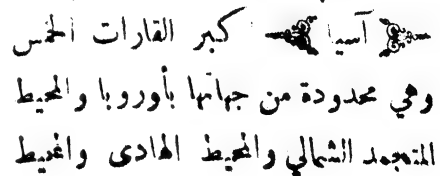 آسيا كبر القارات الخمس
وهي محدودة من جهاتها بأوروبا والمحيط
المتجمد الشمالي والمحيط الهادى والمحيط